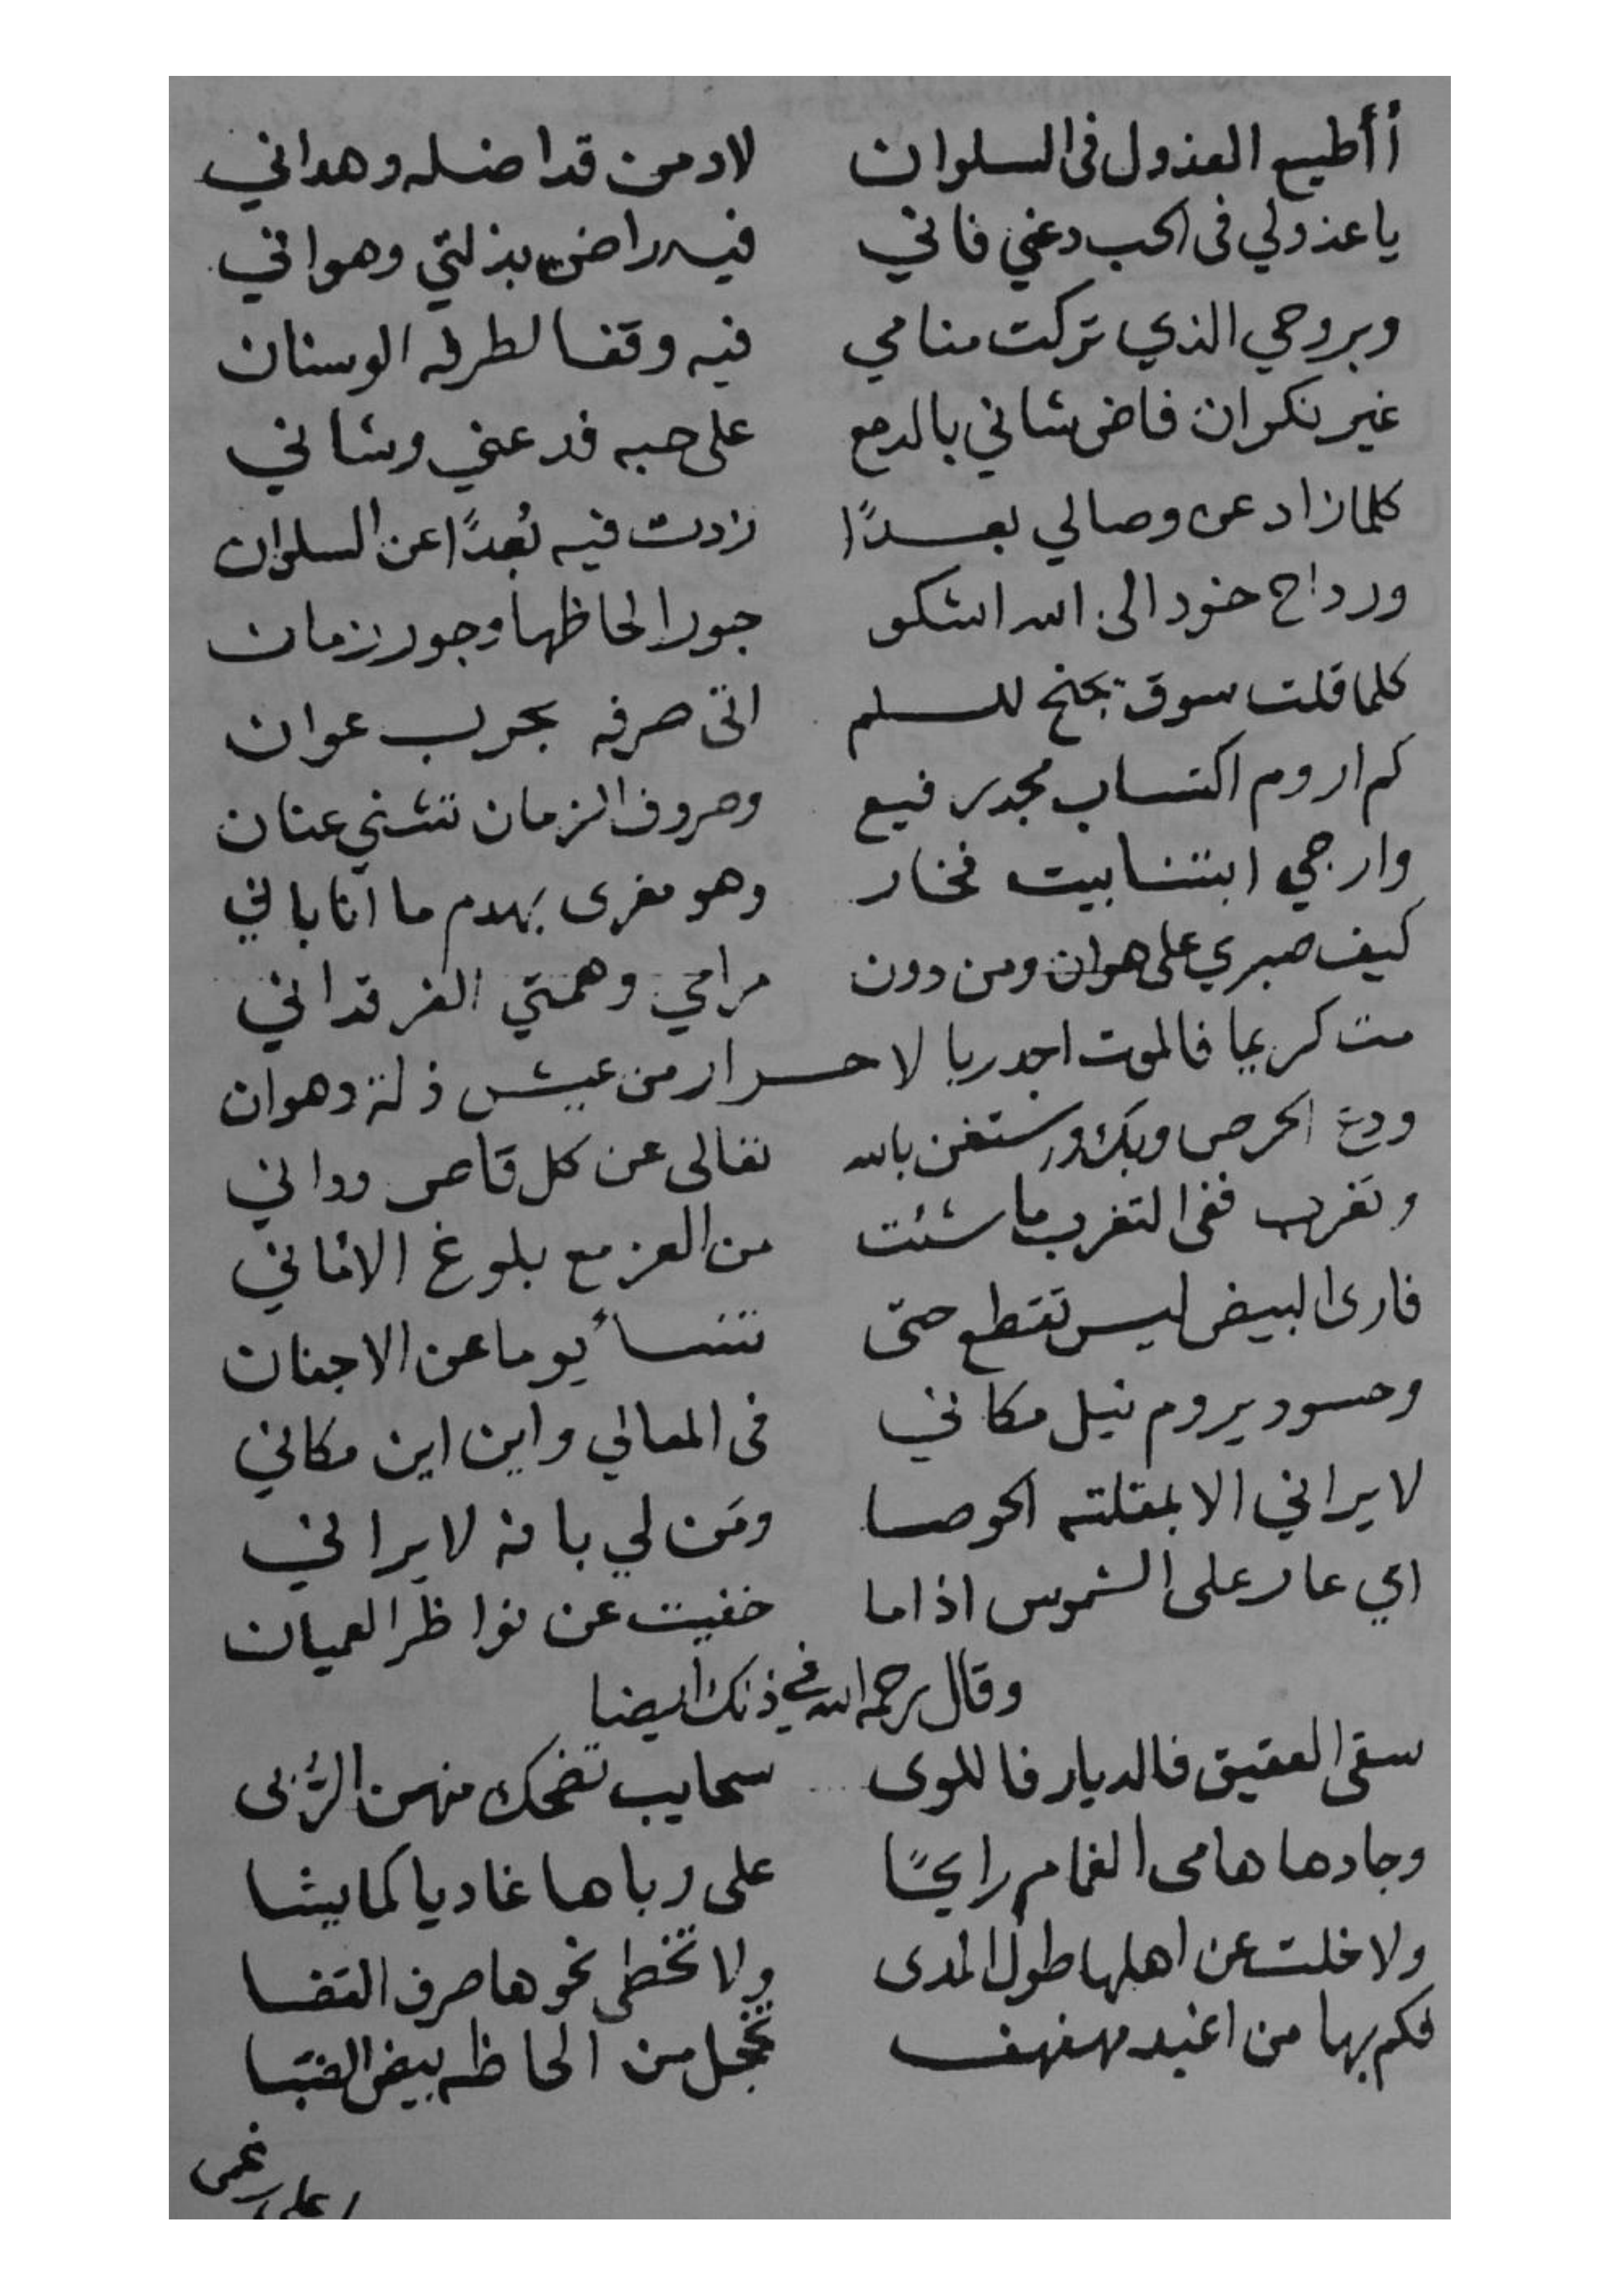 أأطيع العذول فى السلوان لا ومن قد اضله وهداني
يا عذولي فى الحب دعني فاني فيه راض بذلتي وهواني
وبروحي الذي تركت منامي فيه وقفا لطرفه الوسنان
غير نكران فاض شاني بالدمع على حبه فدعني وشاني
كلما زاد عن وصالي بعدًا زدت فيه بُعدًا عن السلوان
ورداح خود الى الله اشكو جور الحاظها وجور زمان
كلما قلت سوق يجنح للسلم اتى صرفه بحرب عوان
كم اروم اكتساب مجد رفيع وصروف الزمان تثني عنان
وارجي ابتنا بيت فخار وهو مغرى بهدم ما انا باني
كيف صبري على هوان ومن دون مرامي وهمتي الفرقداني
مت كريما فالموت اجدر يا لاحرار من عيش ذلة وهوان
ودع الحرص واستغن بالله تعالى عن كل قاص وداني
وتغرب ففى التغرب ما شئت من العز مع بلوغ الاماني
فارى البيض ليس تقطع حتى تنسأ يوما عن الاجفان
وحسود يروم نيل مكاني فى المعالي واين اين مكاني
لا يراني الا بمقلته الحوصا ومَن لي بانه لا يراني
اي عار على الشموس اذا ما خفيت عن نواظر العميان
وقال رحمه الله في ذلك ايضا
سقى العقيق فالديار فاللوى سحايب تضحك منهن الرُّبى
وجادها هامى الغمام رايحًا على رباها غاديا كما يشا
ولا خلت عن اهلها طول المدى ولا تخطى نحوها صرف القضا
فكم بها من اغيد مهفهف تخجل من الحاظه بيض الضبا